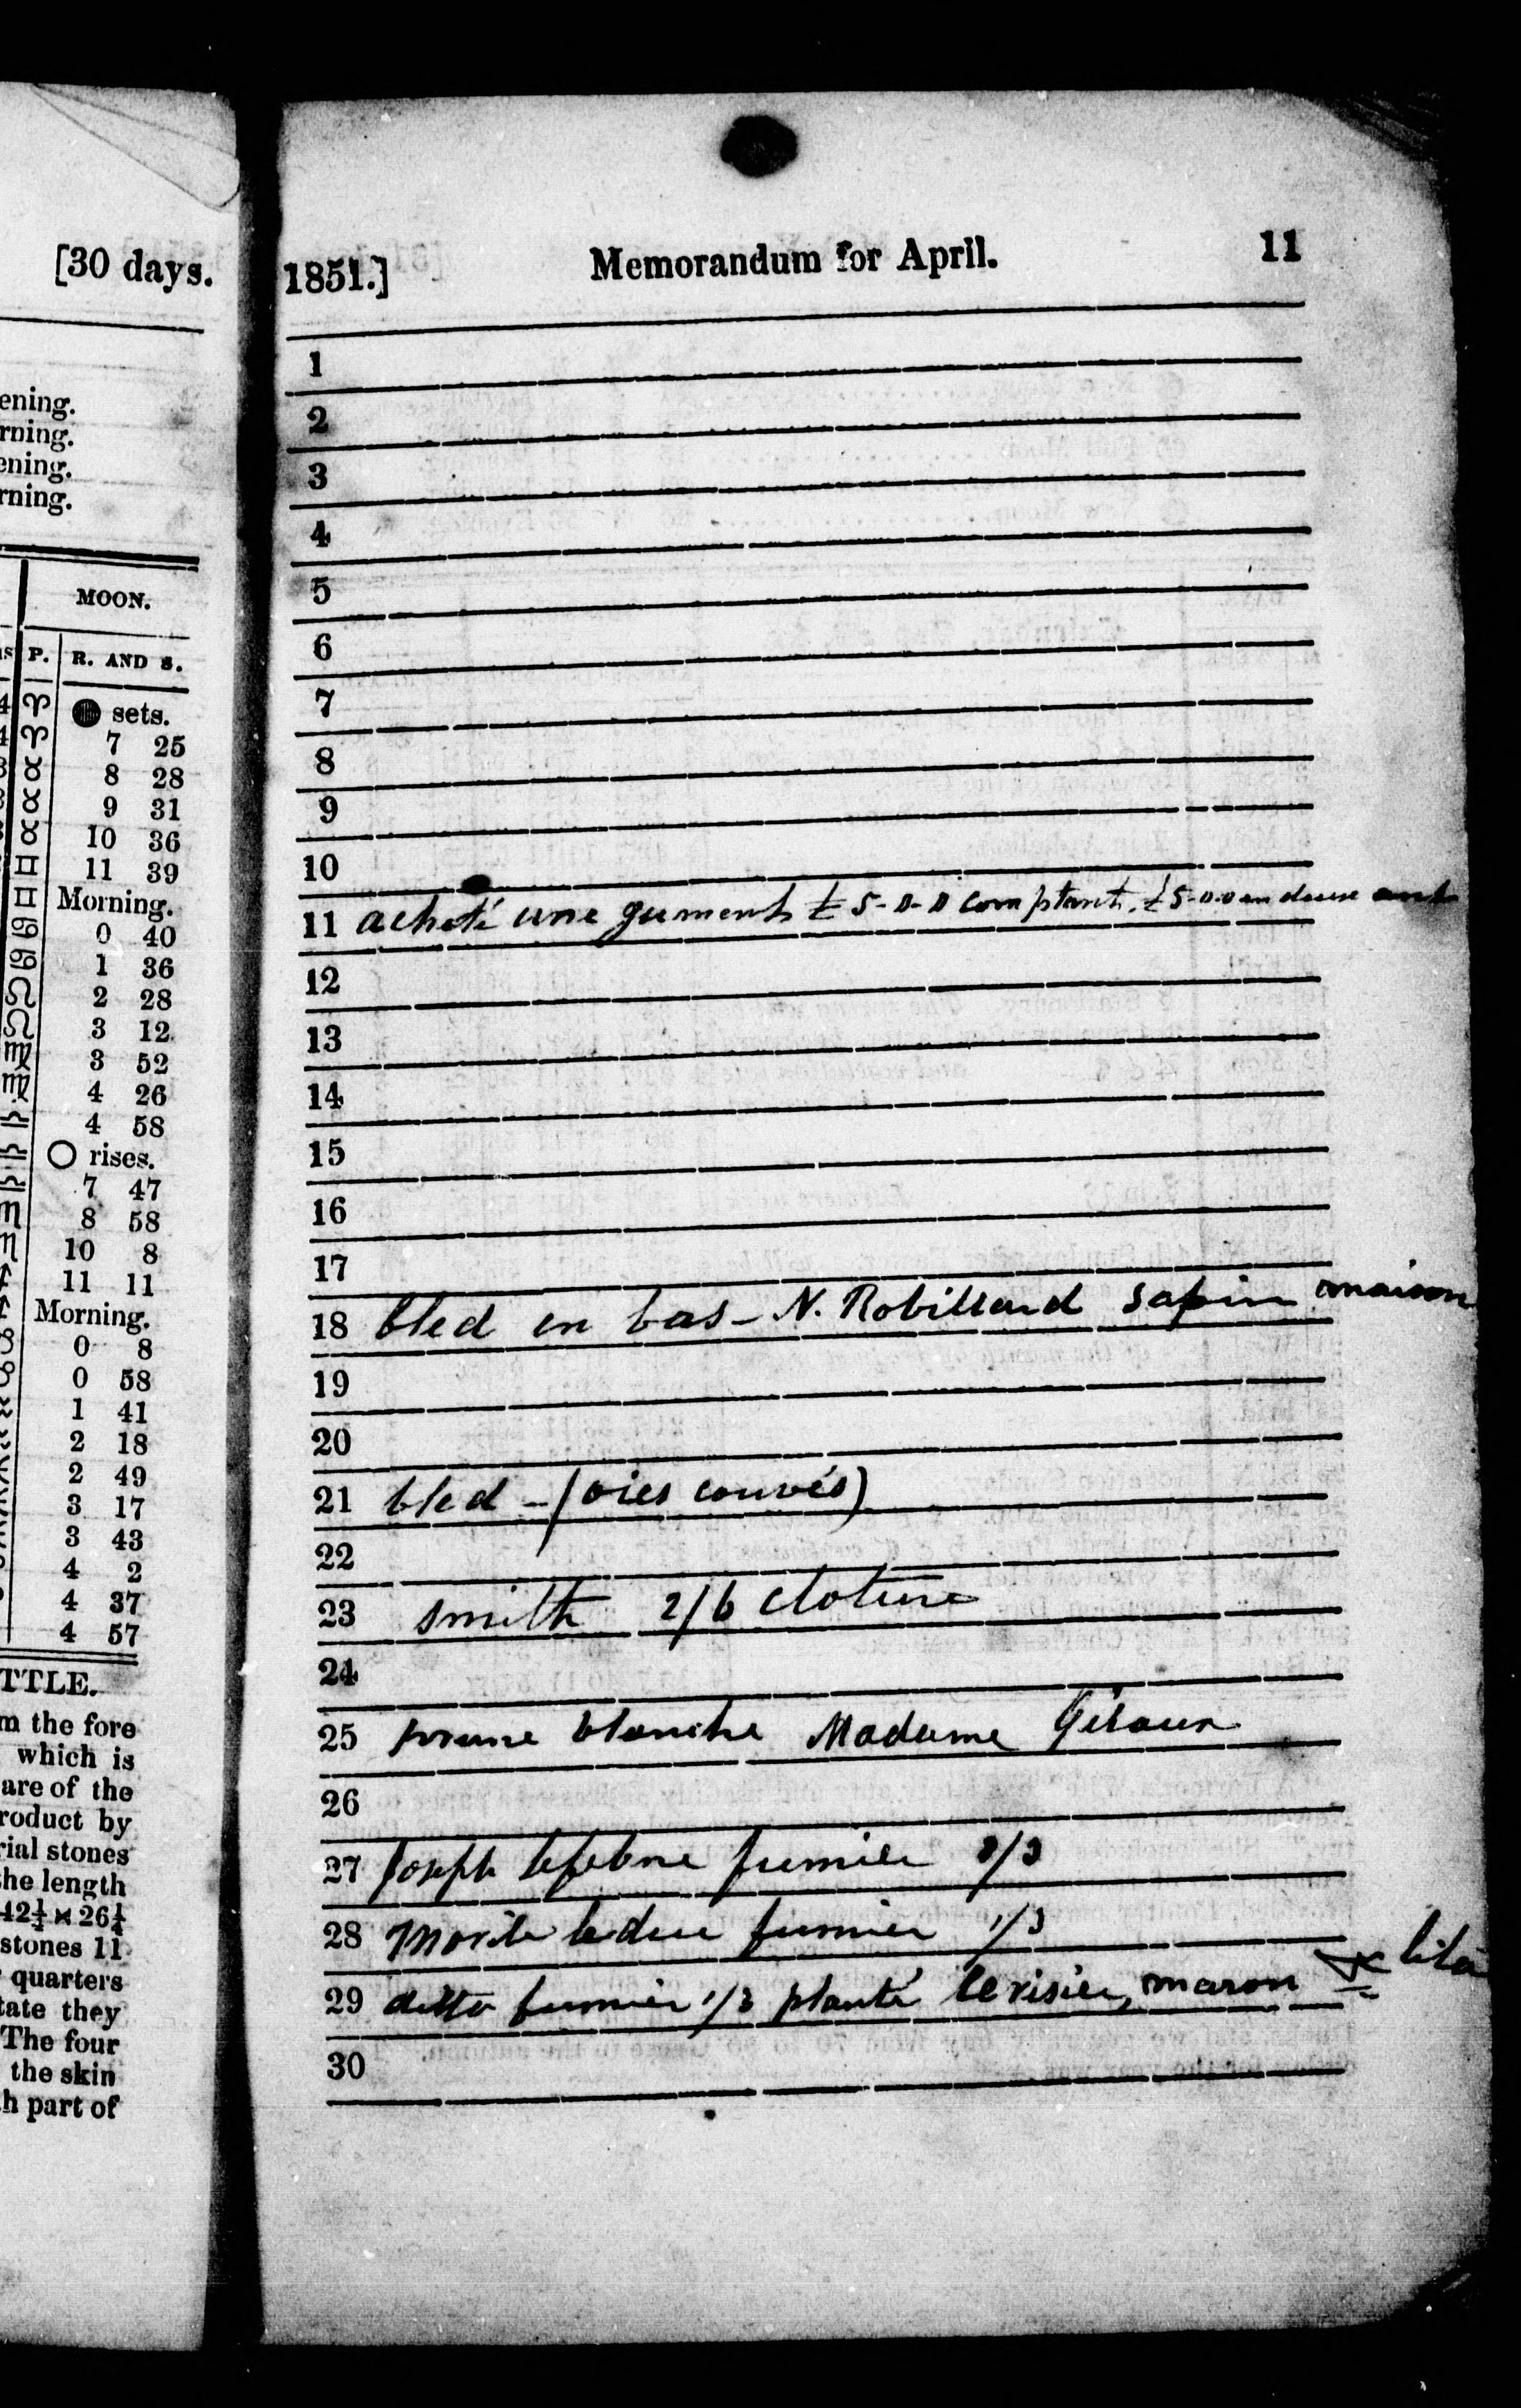 [30 days.
ening.
rning.
ening.
rning.
MOON.
P. R. AND S.
sets.
7 25
8 28
9 31
10 36
11 39
Morning.
0 40
1 36
2 28
3 12
3 52
4 26
4 58
rises.
7 47
8 58
10 8
11 11
Morning.
0 8
0 58
1 41
2 18
2 49
3 17
3 43
4 2
4 37
4 57
TTLE.
m the fore
which is
are of the
roduct by
rial stones
he length
42½ × 26¼
stones 11
quarters
tate they
The four
the skin
h part of
1851.] Memorandum for April. 11
1
2
3
4
5
6
7
8
9
10
11 acheté une jument £5-0-0 comptant. £5-0.0 en deux ans
12
13
14
15
16
17
18 bled en bas - N. Robillard sapin maison
19
20
21 bled - (oies couvés)
22
23 smith 2/6 cloture
24
25 prune blanche Madame
26
27 Joseph lefebvre fumier
28 leduc fumier 1/3
29 ditto fumier 1/3 planté cerisier, maron
30